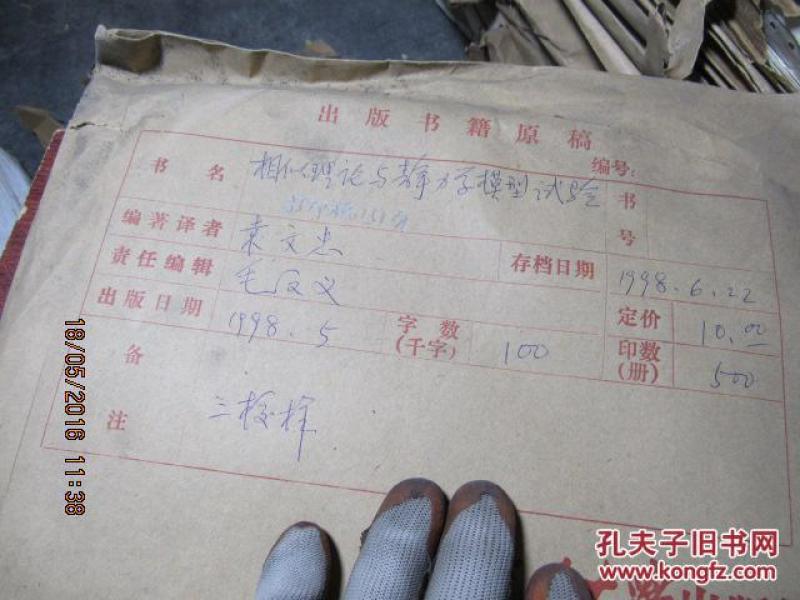 出版书籍原稿
编号:
书名 相似理论与静力学模型试验 书号
编著译者 袁文忠 存档日期 1998.6.22
责任编辑 毛 义 定价 10.00
出版日期 1998.5 字数(千字) 100 印数(册) 500
备注 三校样
18/05/2016 11:38
孔夫子旧书网
www.kongfz.com